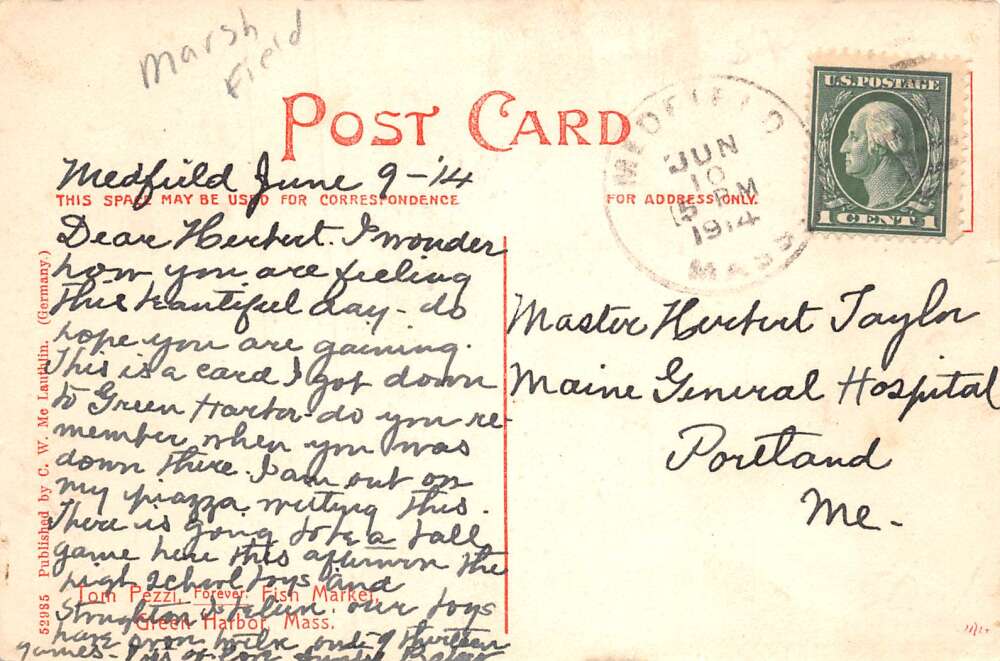 Marsh
Field
POST CARD
MEDFIELD
JUN
10
5 PM
1914
MASS
U.S. POSTAGE
1 CENT 1
Medfield June 9-'14
THIS SPACE MAY BE USED FOR CORRESPONDENCE
FOR ADDRESS ONLY.
Dear Herbert. I wonder
how you are feeling
this beautiful day - do
hope you are gaining.
This is a card I got down
to Green Harbor - do you re-
member when you was
down there. I am out on
my piazza writing this.
There is going to be a ball
game here this afternoon the
high School boys and
Stoughton I believe. our boys
have won twelve out of thirteen
games -
Master Herbert Taylor
Maine General Hospital
Portland
Me -
52985 Published by C. W. Mc Lauthlin. (Germany.)
Tom Pezzi, Forever. Fish Market,
Green Harbor, Mass.